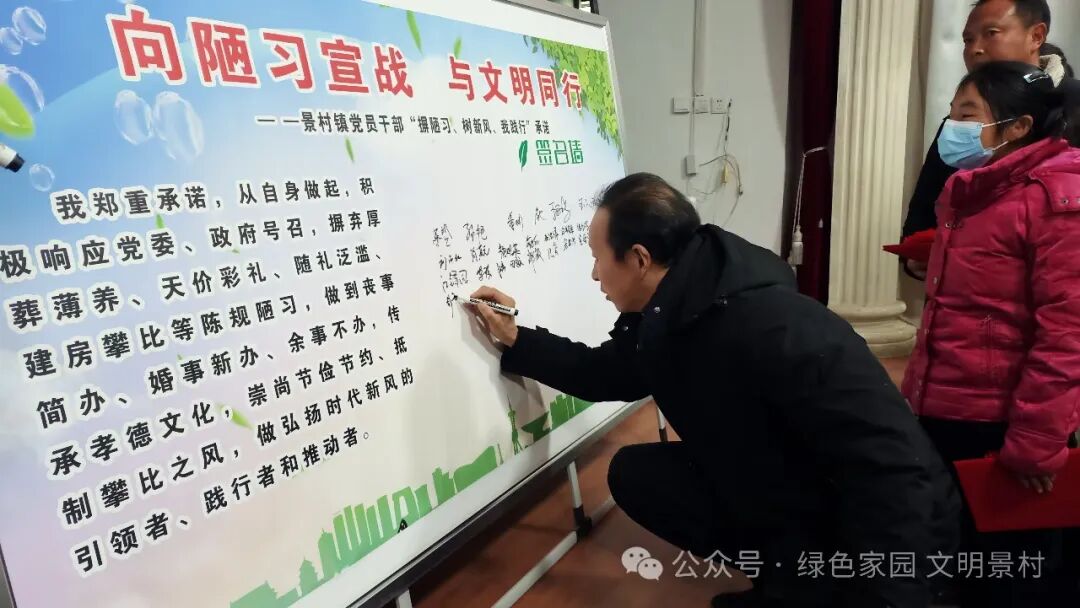 向陋习宣战 与文明同行
——景村镇党员干部“摒陋习、树新风、我践行”承诺
签名墙
我郑重承诺，从自身做起，积
极响应党委、政府号召，摒弃厚
葬薄养、天价彩礼、随礼泛滥、
建房攀比等陈规陋习，做到丧事
简办、婚事新办、余事不办，传
承孝德文化，崇尚节俭节约、抵
制攀比之风，做弘扬时代新风的
引领者、践行者和推动者。
公众号·绿色家园 文明景村